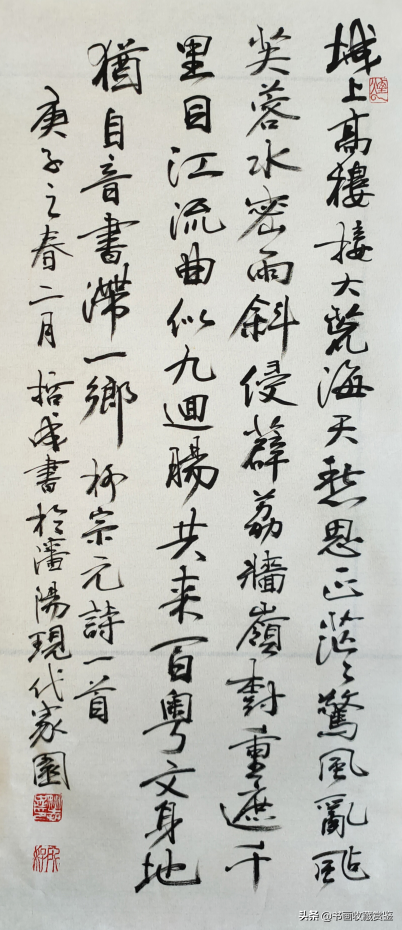 城上高樓接大荒海天愁思正茫々驚風亂颭
芙蓉水密雨斜侵薜荔牆嶺樹重遮千
里目江流曲似九迴腸共来百粵文身地
猶自音書滯一鄉 柳宗元詩一首
庚子之春二月哲成書於瀋陽現代家園
头条 @书画收藏赏鉴